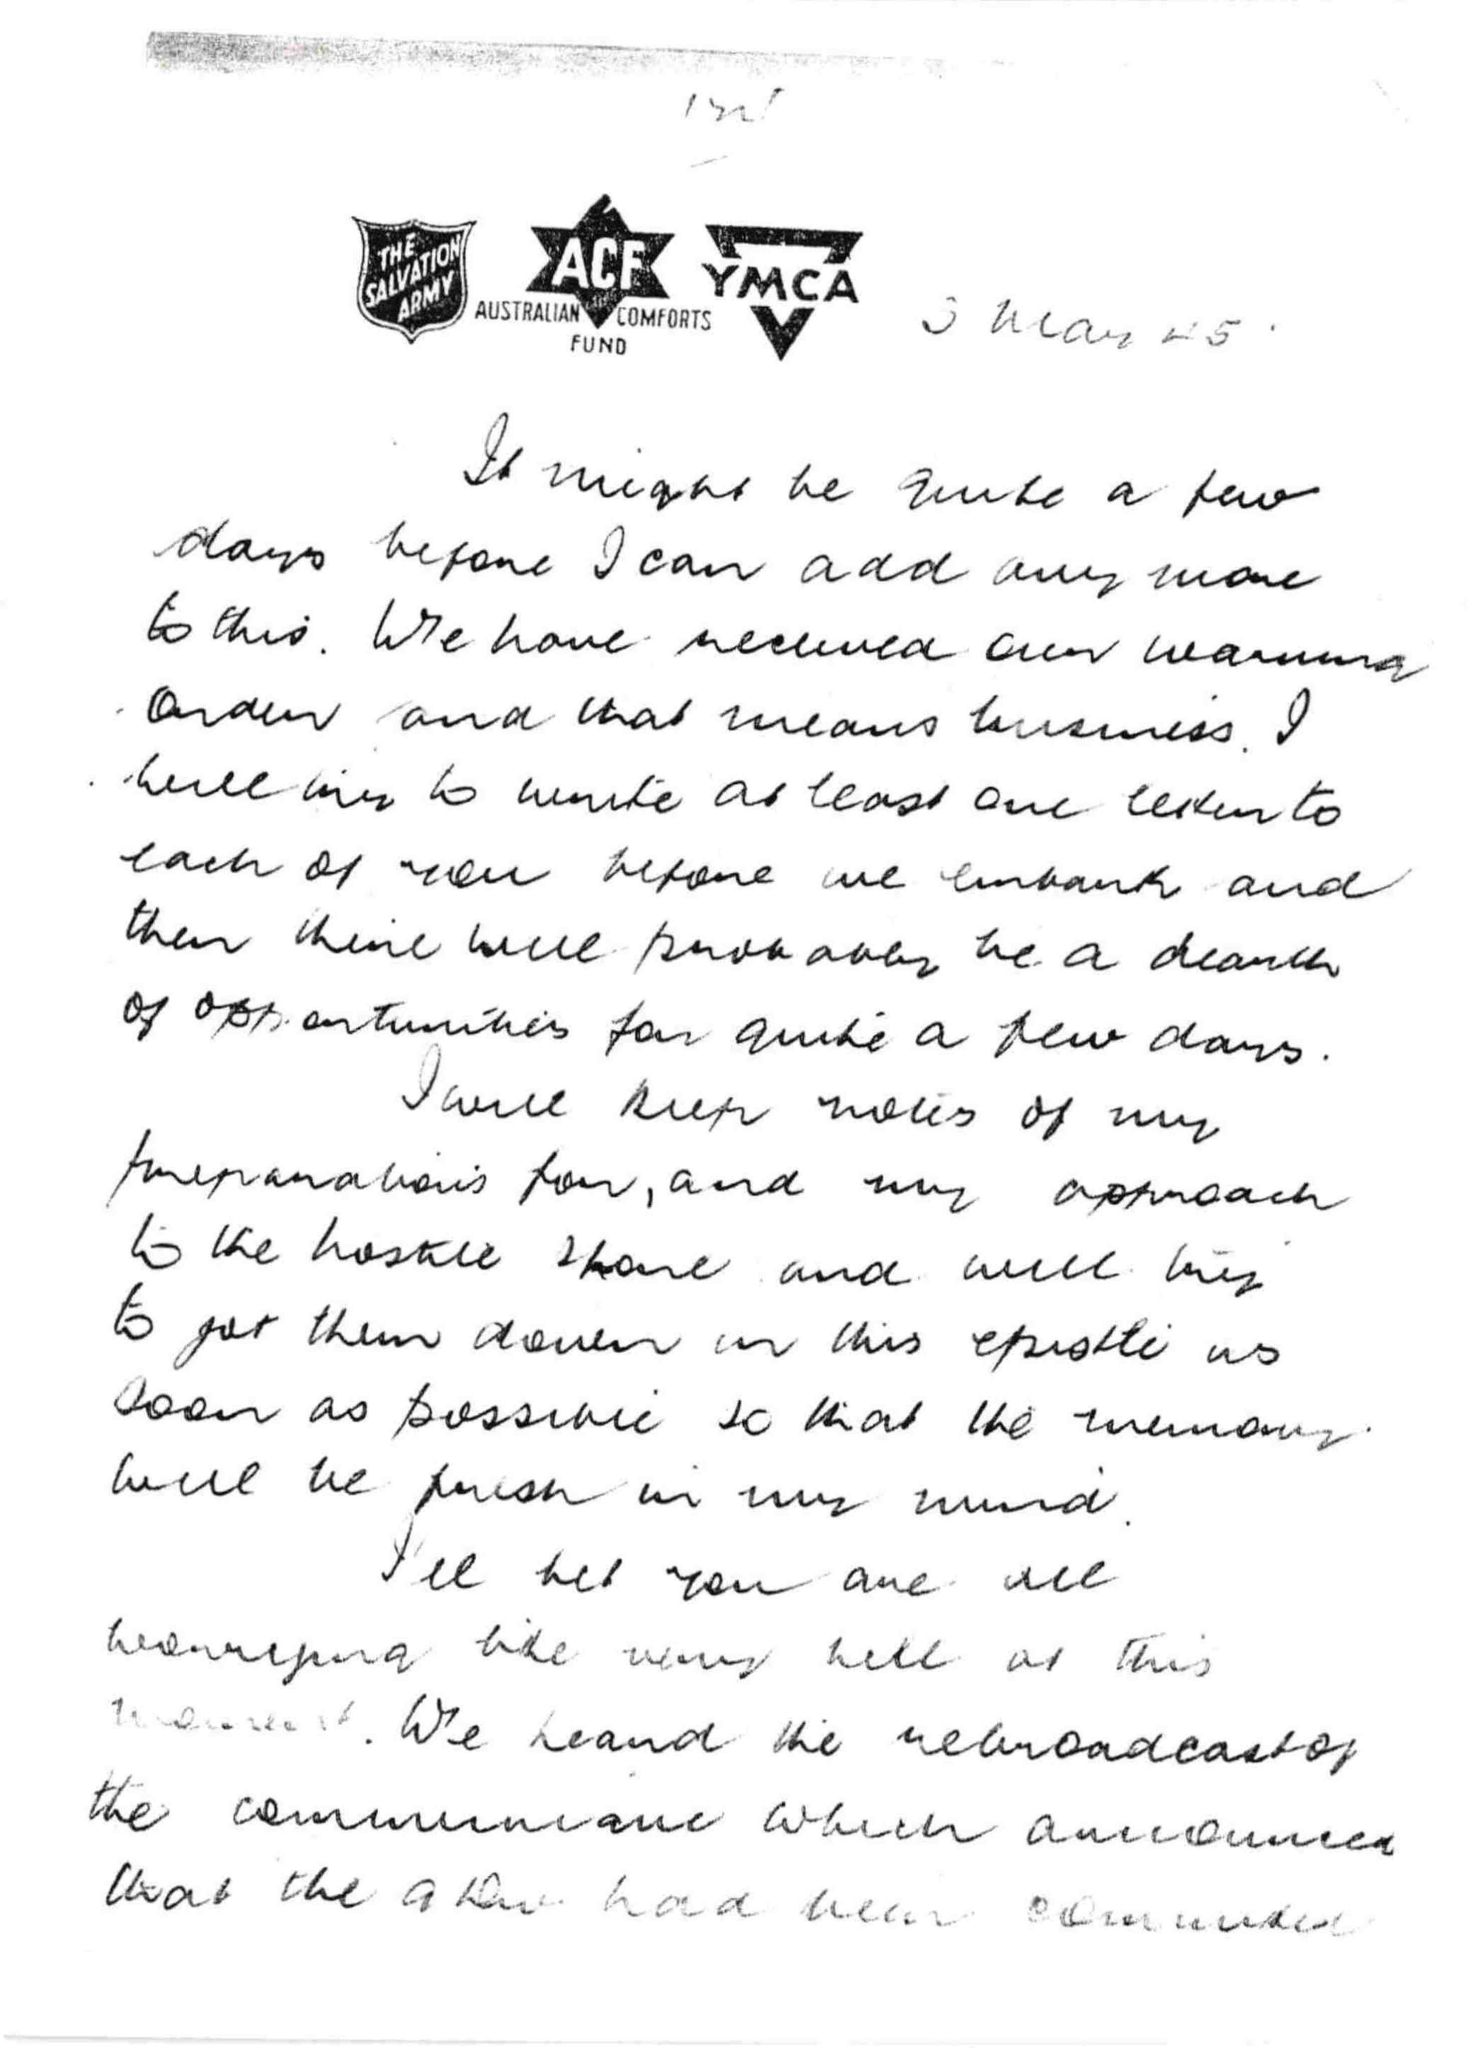 THE
SALVATION
ARMY
ACF
AUSTRALIAN COMFORTS
FUND
YMCA
3 May 45.
It might be quite a few
days before I can add any more
to this. We have received our warning
order and that means business. I
will try to write at least one letter to
each of you before we embark and
then there will probably be a dearth
of opportunities for quite a few days.
I will keep notes of my
preparations for, and my approach
to the hostile shore and will try
to jot them down in this epistle as
soon as possible so that the memory
will be fresh in my mind.
I'll bet you are all
worrying like very hell at this
moment. We heard the rebroadcast of
the communique which announced
that the 9 Div had been committed